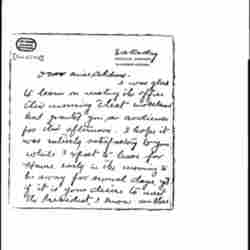 Saturday
Dear Miss Addams.
I was glad
to learn on visiting the office
this morning that
had granted you an audience
for this afternoon. I hope it
was entirely satisfactory to you
while I expect to leave for
Home early in the morning to
be away for several days yet
if it is your desire to meet
the President I know